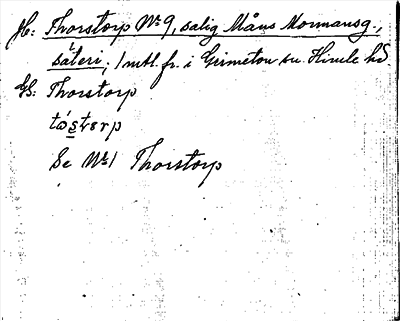 Jb: Thorstorp No 9, salig Måns Mormansg.,
säteri, 1 mtl. fr. i Grimeton sn. Himle hd.
GS: Thorstorp
tós̲tɵrp
Se No 1 Thorstorp